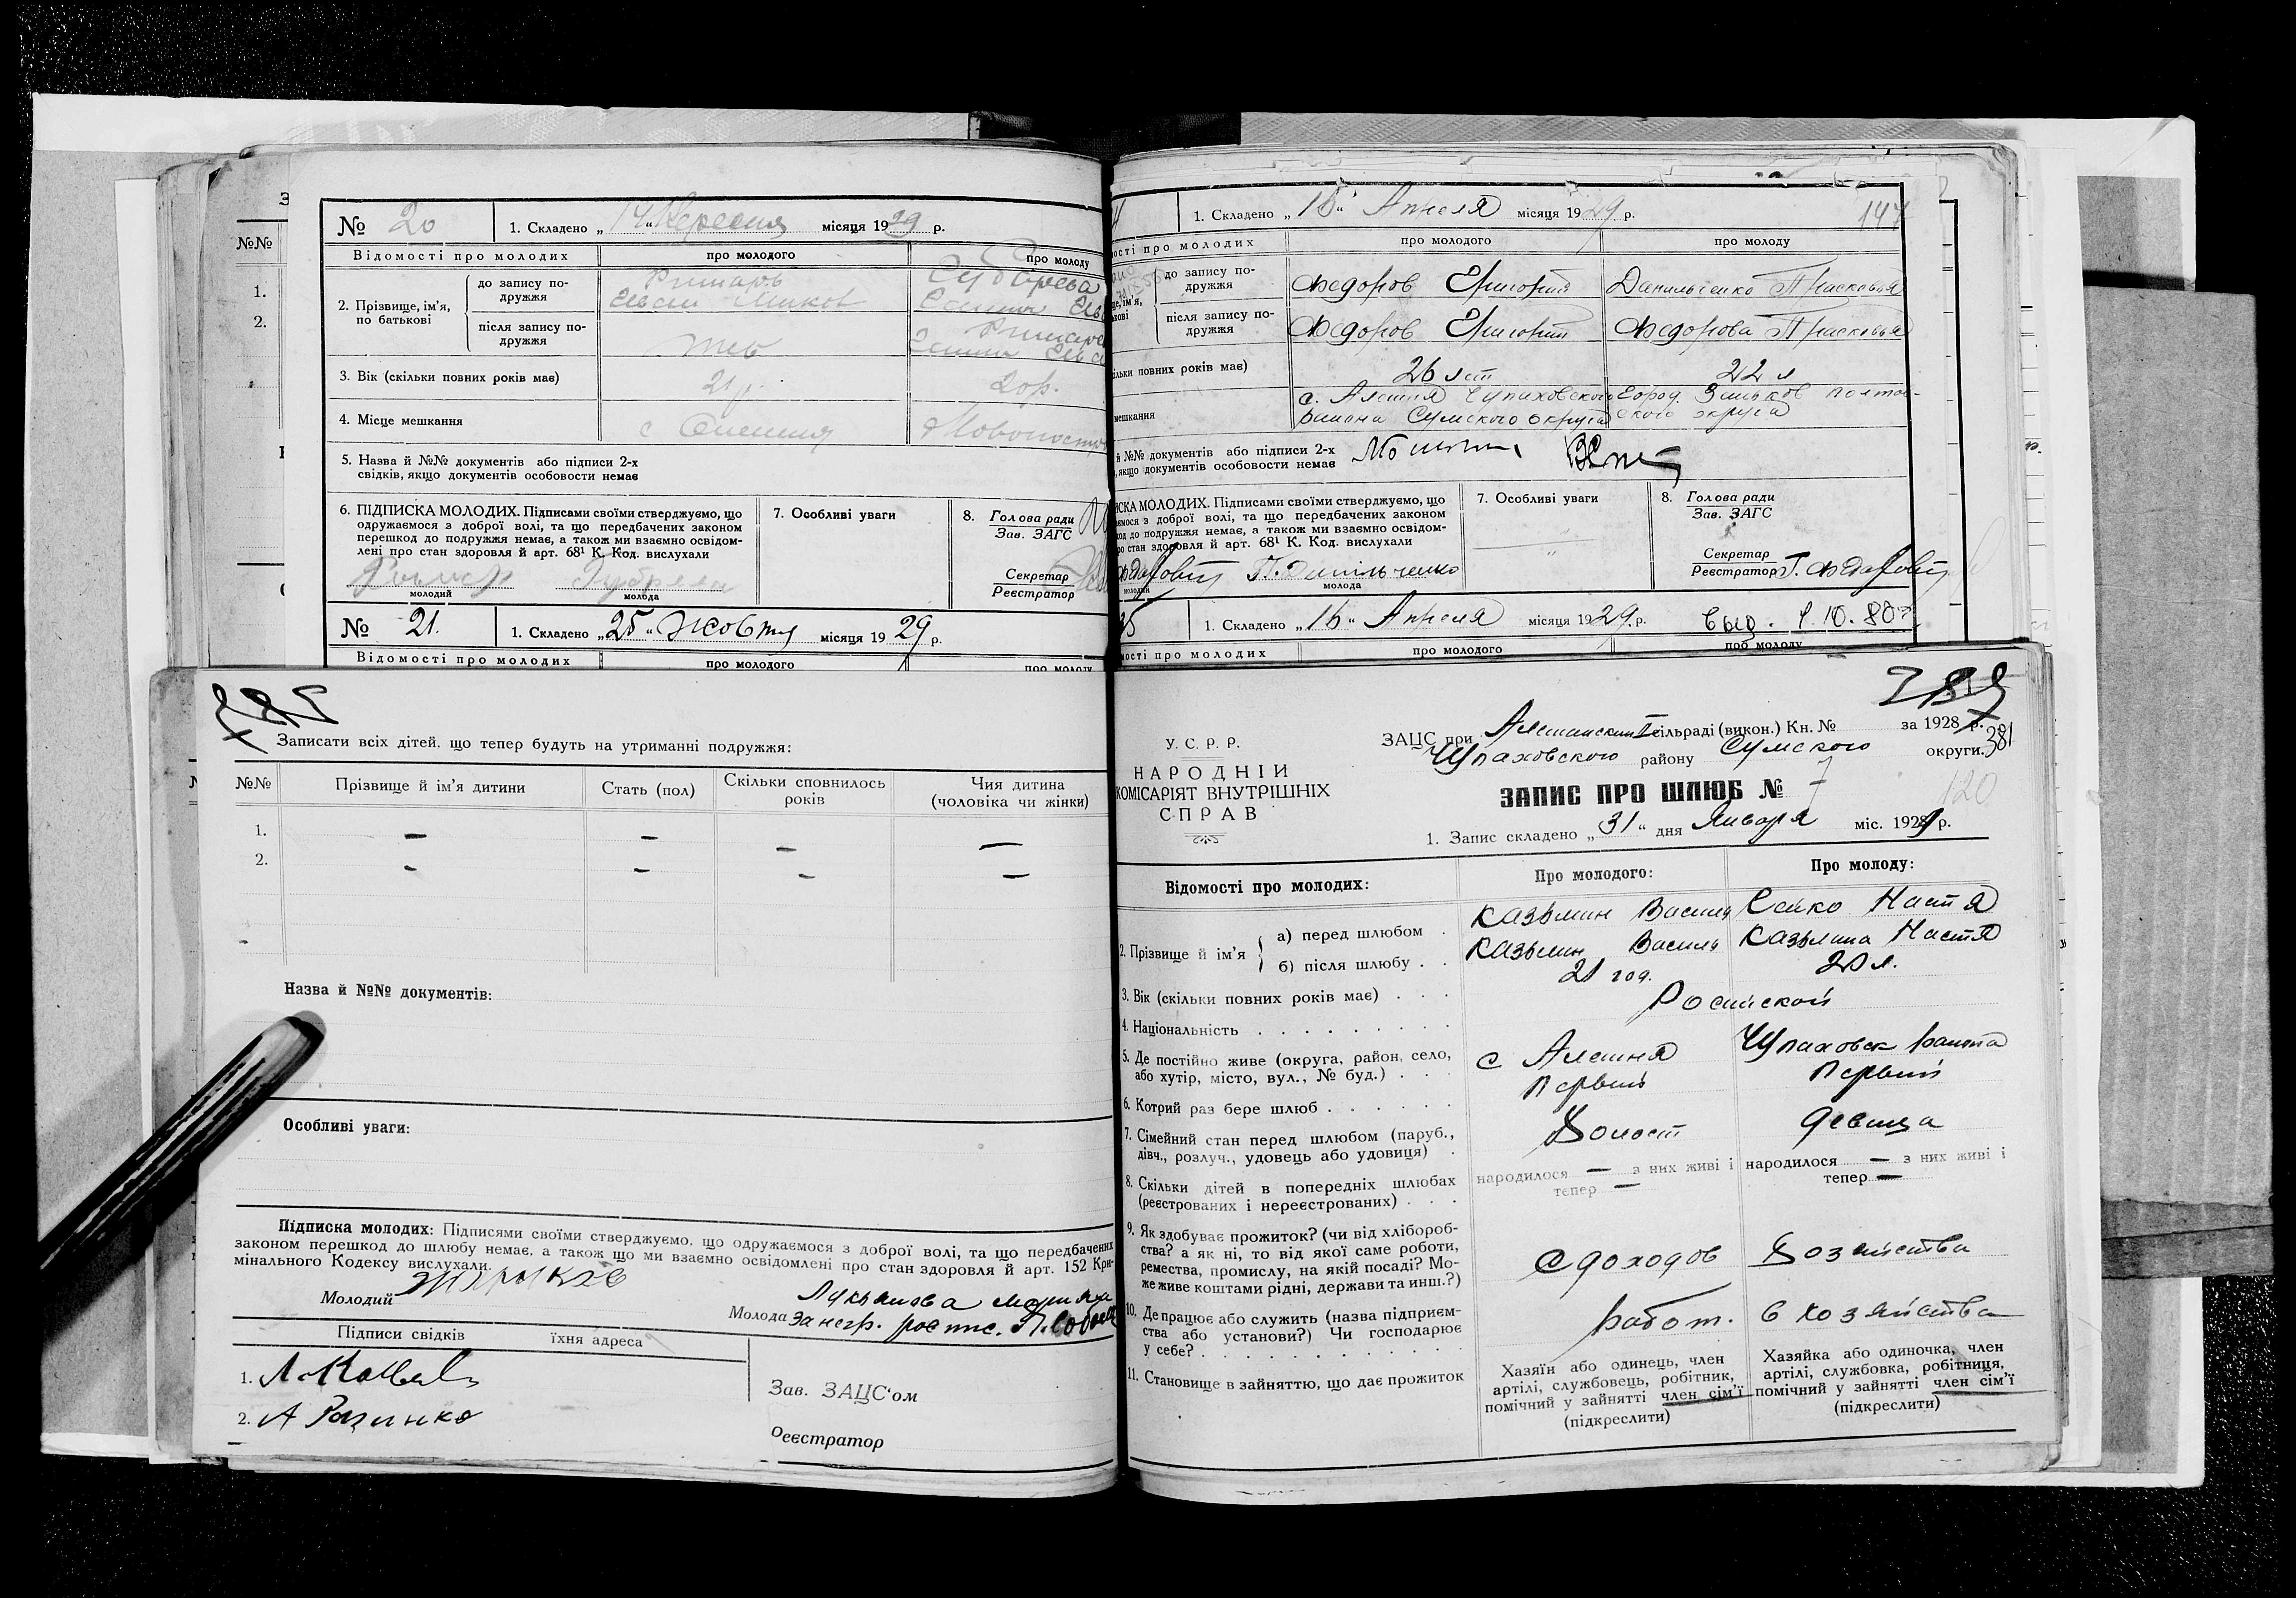 № 20
1. Складено „14“ Вересня місяця 1929 р.
Відомості про молодих
про молодого
про молоду
2. Прізвище, ім'я, по батькові
до запису подружжя
після запису подружжя
3. Вік (скільки повних років має)
21 р.
20 р.
4. Місце мешкання
с
5. Назва й №№ документів або підписи 2-х
свідків, якщо документів особовости немає
6. ПІДПИСКА МОЛОДИХ. Підписами своїми стверджуємо, що
одружаємося з доброї волі, та що передбачених законом
перешкод до подружжя немає, а також ми взаємно освідом-
лені про стан здоровля й арт. 68¹ К. Код. вислухали
молодий
молода
7. Особливі уваги
8. Голова ради
Зав. ЗАГС
Секретар
Реєстратор
№ 21.
1. Складено „25“ Жовтня місяця 1929 р.
Відомості про молодих
про молодого
про молоду
1. Складено „15“ Апреля місяця 1929 р.
147
ості про молодих
про молодого
про молоду
до запису по-
дружжя
Федоров Григорий
Данильченко Прасковья
після запису по-
дружжя
Федоров Григорий
Федорова Прасковья
ільки повних років має)
26 лет
22 л
мешкання
с. Алешня Чупаховского
района Сумского округа
Город. Зиньков Полтав-
ского округа
й №№ документів або підписи 2-х
, якщо документів особовости немає
ИСКА МОЛОДИХ. Підписами своїми стверджуємо, що
ємося з доброї волі, та що передбачених законом
од до подружжя немає, а також ми взаємно освідом-
ро стан здоровля й арт. 68¹ К. Код. вислухали
П. Данильченко
молодий
молода
7. Особливі уваги
8. Голова ради
Зав. ЗАГС
Секретар
Реєстратор
35
1. Складено „16“ Апреля місяця 1929 р.
ності про молодих
про молодого
про молоду
Записати всіх дітей, що тепер будуть на утриманні подружжя:
№№
Прізвище й ім'я дитини
Стать (пол)
Скільки сповнилось
років
Чия дитина
(чоловіка чи жінки)
1. — — — —
2. — — — —
Назва й №№ документів:
Особливі уваги:
Підписка молодих: Підписями своїми стверджуємо, що одружаємося з доброї волі, та що передбачених
законом перешкод до шлюбу немає, а також що ми взаємно освідомлені про стан здоровля й арт. 152 Кри-
мінального Кодексу вислухали.
Молодий
Молода
Підписи свідків
їхня адреса
1.
2.
Зав. ЗАЦС'ом
Реєстратор
У. С. Р. Р.
НАРОДНІЙ
КОМІСАРІЯТ ВНУТРІШНІХ
СПРАВ
ЗАЦС при сільраді (викон.) Кн. № за 1928 р.
Чупаховского району Сумского округи.
381
ЗАПИС ПРО ШЛЮБ № 7
120
1. Запис складено „31“ дня Января міс. 1929 р.
Відомості про молодих:
Про молодого:
Про молоду:
2. Прізвище й ім'я
а) перед шлюбом
Казьмин Василь
Сейко Настя
б) після шлюбу
Казьмин Василь
Казьмина Настя
3. Вік (скільки повних років має)
21 год.
20 л.
4. Національність
Росийской
5. Де постійно живе (округа, район, село,
або хутір, місто, вул., № буд.)
с Алешня
Чупаховск района
6. Котрий раз бере шлюб
первый
первый
7. Сімейний стан перед шлюбом (паруб.,
дівч., розлуч., удовець або удовиця)
Холост
девица
8. Скільки дітей в попередніх шлюбах
(реєстрованих і нереєстрованих)
народилося — з них живі і
тепер —
народилося — з них живі і
тепер —
9. Як здобуває прожиток? (чи від хлібороб-
ства? а як ні, то від якої саме роботи,
ремества, промислу, на якій посаді? Мо-
же живе коштами рідні, держави та инш.?)
с доходов
Хозяйства
10. Де працює або служить (назва підприєм-
ства або установи?) Чи господарює
у себе?
работ.
в хозяйстве
11. Становище в зайняттю, що дає прожиток
Хазяїн або одинець, член
артілі, службовець, робітник,
помічний у зайнятті член сім'ї
(підкреслити)
Хазяйка або одиночка, член
артілі, службовка, робітниця,
помічний у зайнятті член сім'ї
(підкреслити)